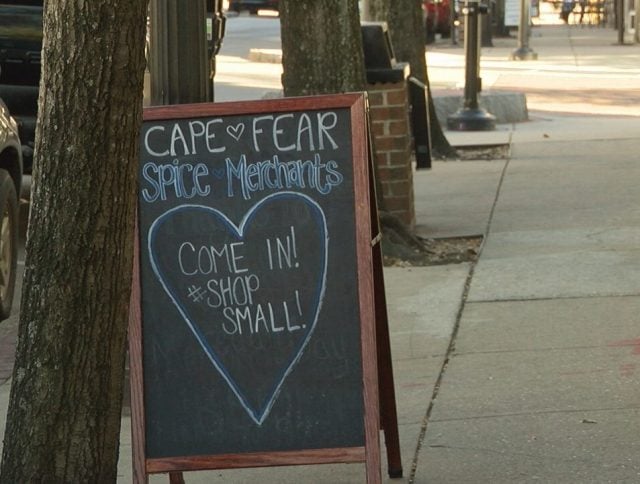 CAPE ♡ FEAR
Spice Merchants
COME IN!
#SHOP
SMALL!